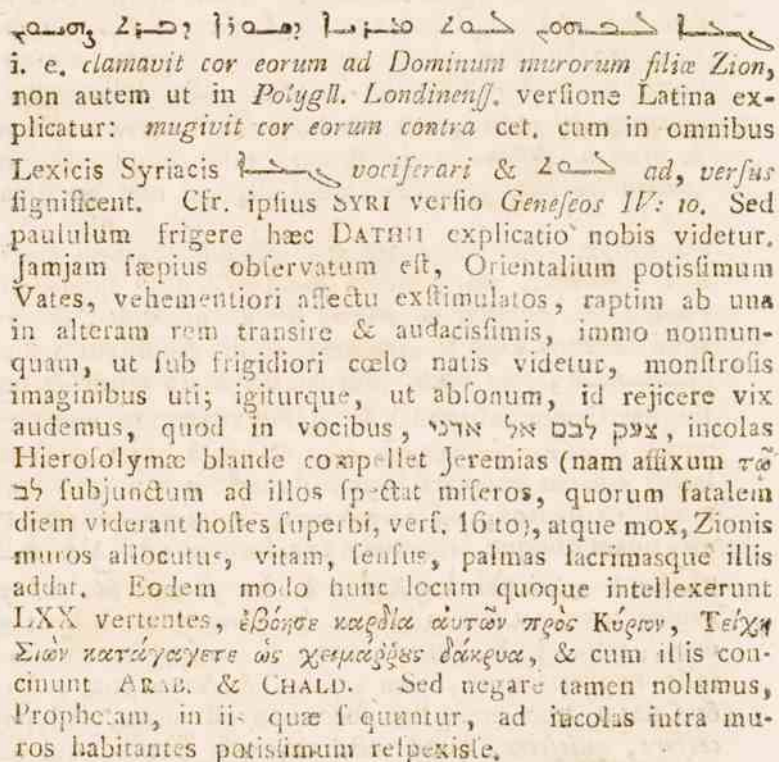 ܓܥܐ ܠܒܗܘܢ ܠܘܬ ܡܪܝܐ ܕܫܘܪܐ ܕܒܪܬ ܨܗܝܘܢ
i. e. clamavit cor eorum ad Dominum murorum filiæ Zion,
non autem ut in Polygll. Londinenſſ. verſione Latina ex-
plicatur: mugivit cor eorum contra cet. cum in omnibus
Lexicis Syriacis ܓܥܐ vociferari & ܠܘܬ ad, verſus
ſignificent. Cfr. ipſius SYRI verſio Geneſeos IV: 10. Sed
paululum frigere hæc DATHII explicatio nobis videtur.
Jamjam ſæpius obſervatum eſt, Orientalium potisſimum
Vates, vehementiori affectu exſtimulatos, raptim ab una
in alteram rem transire & audacisſimis, immo nonnun-
quam, ut ſub frigidiori cœlo natis videtur, monſtroſis
imaginibus uti; igiturque, ut abſonum, id rejicere vix
audemus, quod in vocibus, צעק לבם אל אדני, incolas
Hieroſolymæ blande compellet Jeremias (nam affixum τῷ
לב ſubjunctum ad illos ſpectat miſeros, quorum fatalem
diem viderant hoſtes ſuperbi, verſ. 16:to), atque mox, Zionis
muros allocutus, vitam, ſenſus, palmas lacrimasque illis
addat. Eodem modo hunc locum quoque intellexerunt
LXX vertentes, ἐβόησε καρδία αὐτῶν πρὸς Κύριον, Τείχη
Σιὼν καταγάγετε ὡς χειμάῤῥους δάκρυα, & cum illis con-
cinunt ARAB. & CHALD. Sed negare tamen nolumus,
Prophetam, in iis quæ ſequuntur, ad incolas intra mu-
ros habitantes potisſimum reſpexisſe.